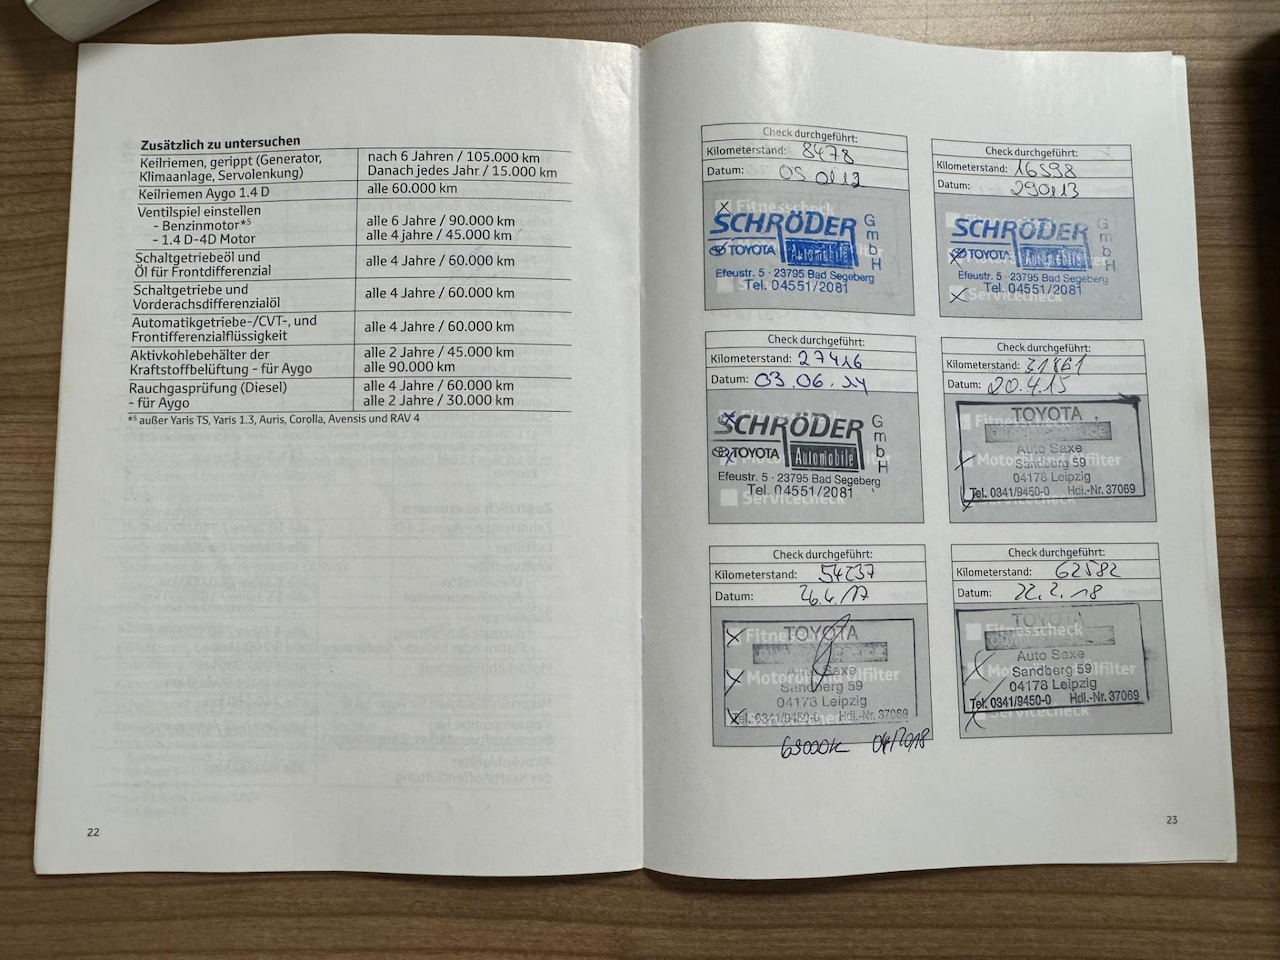 Zusätzlich zu untersuchen
Keilriemen, gerippt (Generator, Klimaanlage, Servolenkung)
nach 6 Jahren / 105.000 km
Danach jedes Jahr / 15.000 km
Keilriemen Aygo 1.4 D
alle 60.000 km
Ventilspiel einstellen
- Benzinmotor*⁵
alle 6 Jahre / 90.000 km
- 1.4 D-4D Motor
alle 4 jahre / 45.000 km
Schaltgetriebeöl und
Öl für Frontdifferenzial
alle 4 Jahre / 60.000 km
Schaltgetriebe und
Vorderachsdifferenzialöl
alle 4 Jahre / 60.000 km
Automatikgetriebe-/CVT-, und
Frontifferenzialflüssigkeit
alle 4 Jahre / 60.000 km
Aktivkohlebehälter der
Kraftstoffbelüftung - für Aygo
alle 2 Jahre / 45.000 km
alle 90.000 km
Rauchgasprüfung (Diesel)
- für Aygo
alle 4 Jahre / 60.000 km
alle 2 Jahre / 30.000 km
*⁵ außer Yaris TS, Yaris 1.3, Auris, Corolla, Avensis und RAV 4
22
Check durchgeführt:
Kilometerstand: 8478
Datum:
Fitnesscheck
SCHRÖDER
GmbH
TOYOTA Automobile
Efeustr. 5 · 23795 Bad Segeberg
Tel. 04551/2081
Check durchgeführt:
Kilometerstand: 16598
Datum:
SCHRÖDER
GmbH
TOYOTA Automobile
Efeustr. 5 · 23795 Bad Segeberg
Tel. 04551/2081
Servicecheck
Check durchgeführt:
Kilometerstand: 27416
Datum: 03.06.14
SCHRÖDER
GmbH
TOYOTA Automobile
Efeustr. 5 · 23795 Bad Segeberg
Tel. 04551/2081
Servicecheck
Check durchgeführt:
Kilometerstand: 31861
Datum: 20.4.15
TOYOTA
Fitnesscheck
Auto Saxe
Motoröl und Ölfilter
Sandberg 59
04178 Leipzig
Tel. 0341/9450-0 Hdl.-Nr. 37069
Servicecheck
Check durchgeführt:
Kilometerstand: 54237
Datum: 26.4.17
TOYOTA
Fitnesscheck
Auto Saxe
Motoröl und Ölfilter
Sandberg 59
04178 Leipzig
Tel. 0341/9450-0 Hdl.-Nr. 37069
Servicecheck
04/2018
Check durchgeführt:
Kilometerstand: 62582
Datum: 22.2.18
TOYOTA
Fitnesscheck
Auto Saxe
Sandberg 59
Motoröl und Ölfilter
04178 Leipzig
Tel. 0341/9450-0 Hdl.-Nr. 37069
Servicecheck
23